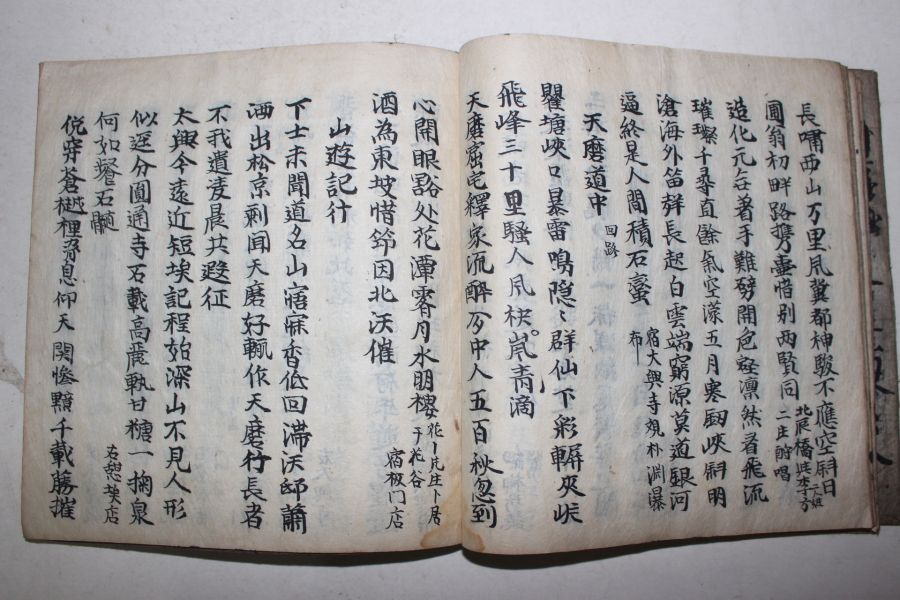 長嘯西山万里風冀郡神駿不應空斜日
北辰橋
圓翁初畔路携盡惜別两賢同
二庄酧唱
造化元㒵著手難劈開色壁凛然着飛流
璀璨千尋直餘氣空濛五月寒劒峽斜明
滄海外笛舜長起白雲端窮源莫道銀河
逼終是人間積石蠻
宿大興寺観朴淵瀑布
天磨道中
回路
瞿塘峽口暴雷鳴隐〻群仙下彩軿夾峽
飛峰三十里騷人風袂嵐靑滴
天磨窟宅繹家流醉夯中人五百秋忽到
心開眼豁处花潭霽月水明樓
花潭
宿板门店
酒為東坡惜節因北沃催
山遊記行
下士未聞道名山寤寐香低回滞沃邸蕭
洒出松京剩闻天磨好輒作天磨行長者
不我遺凌晨共遐征
太興今遠近短埃記程始深山不見人形
似逕分圓通寺石載高麗執甘糖一掬泉
何如餐石髓
右憇店
俛穿蒼樾裡脅息仰天関慘黷千載藤摧